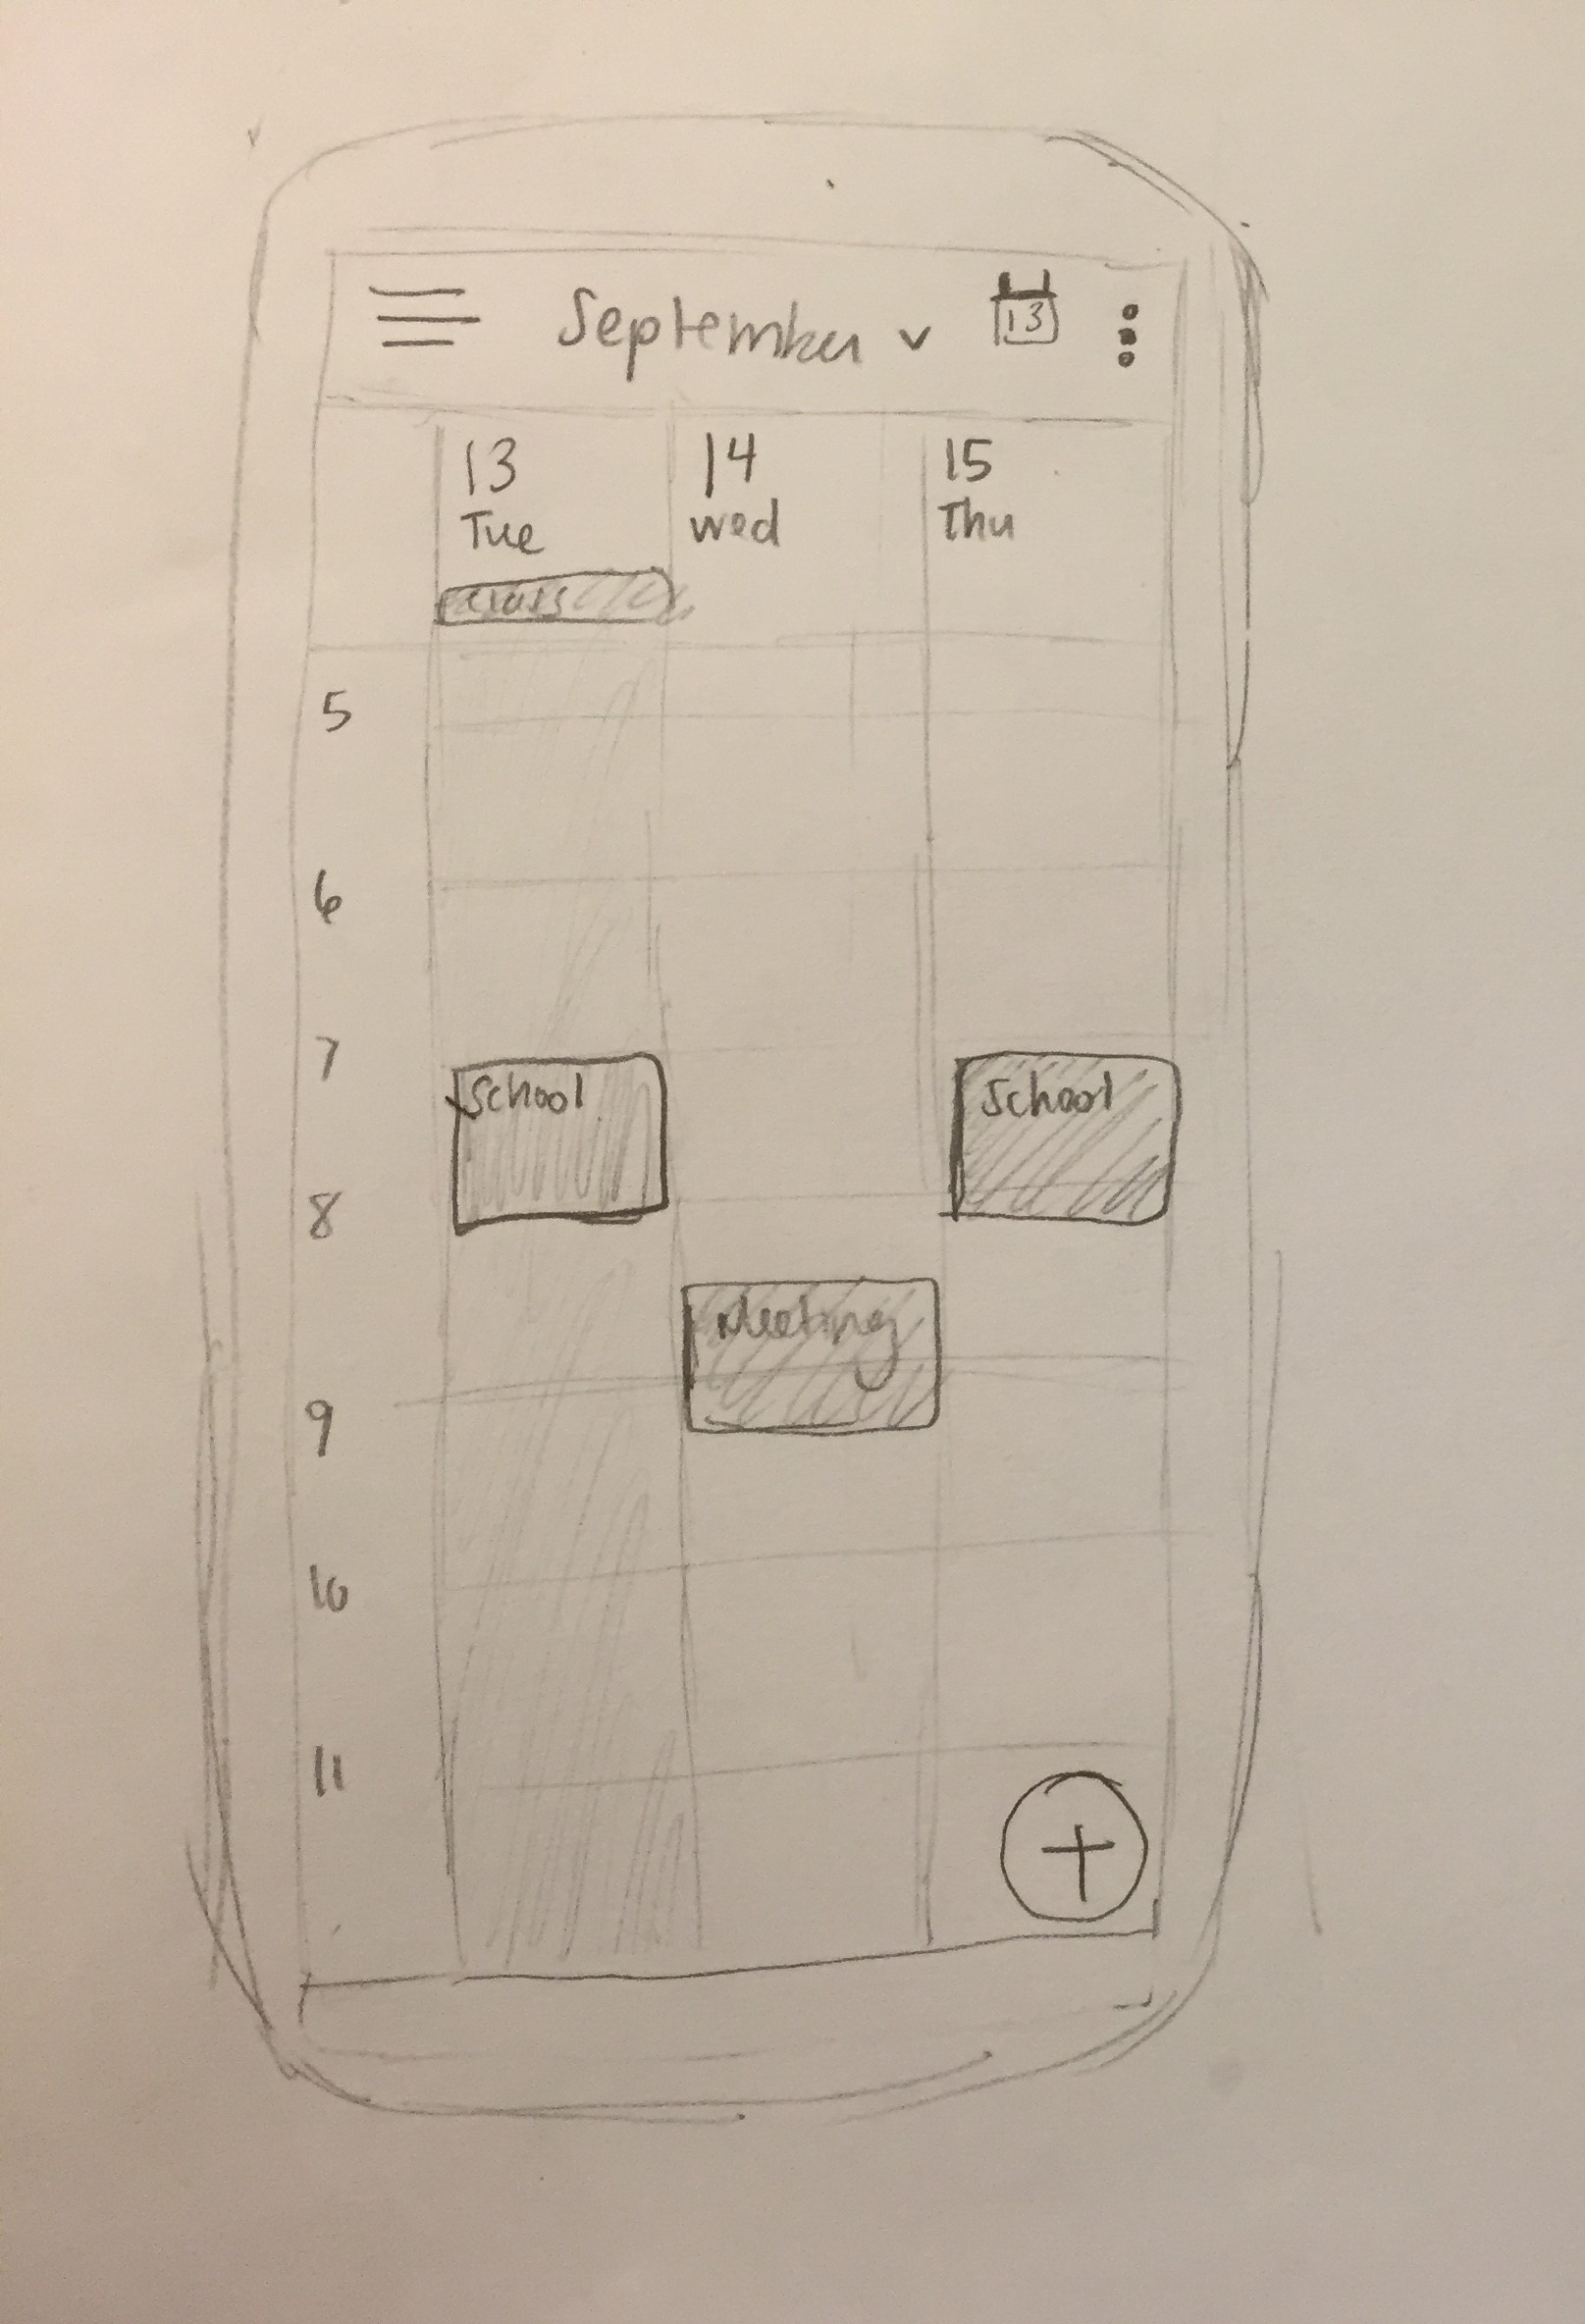 September 13
13 14 15
Tue Wed Thu
class
5
6
7
School School
8
Meeting
9
10
11